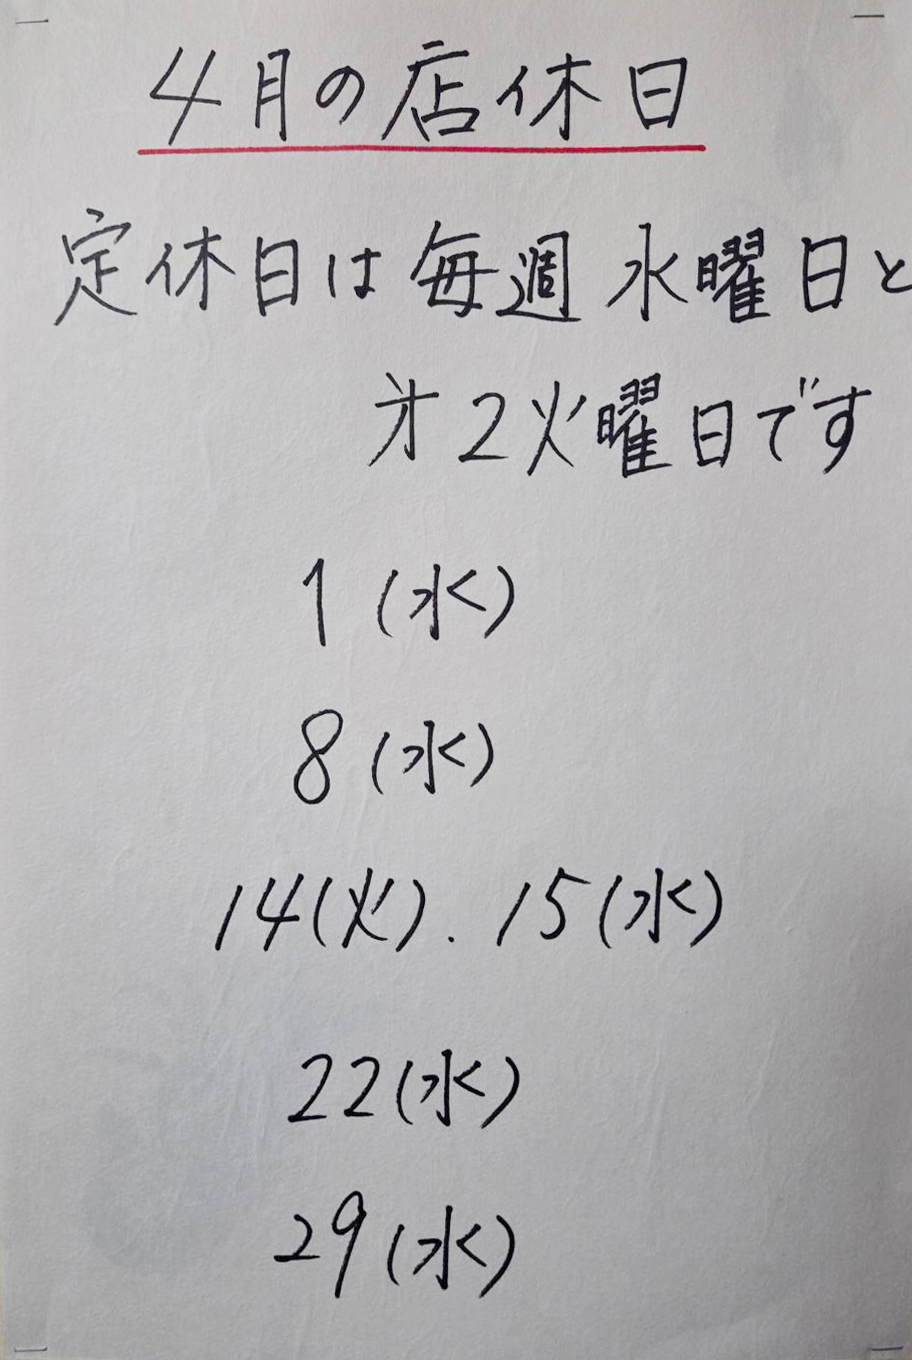 4月の店休日
定休日は毎週水曜日と
才2火曜日です
1(水)
8(水)
14(火).15(水)
22(水)
29(水)